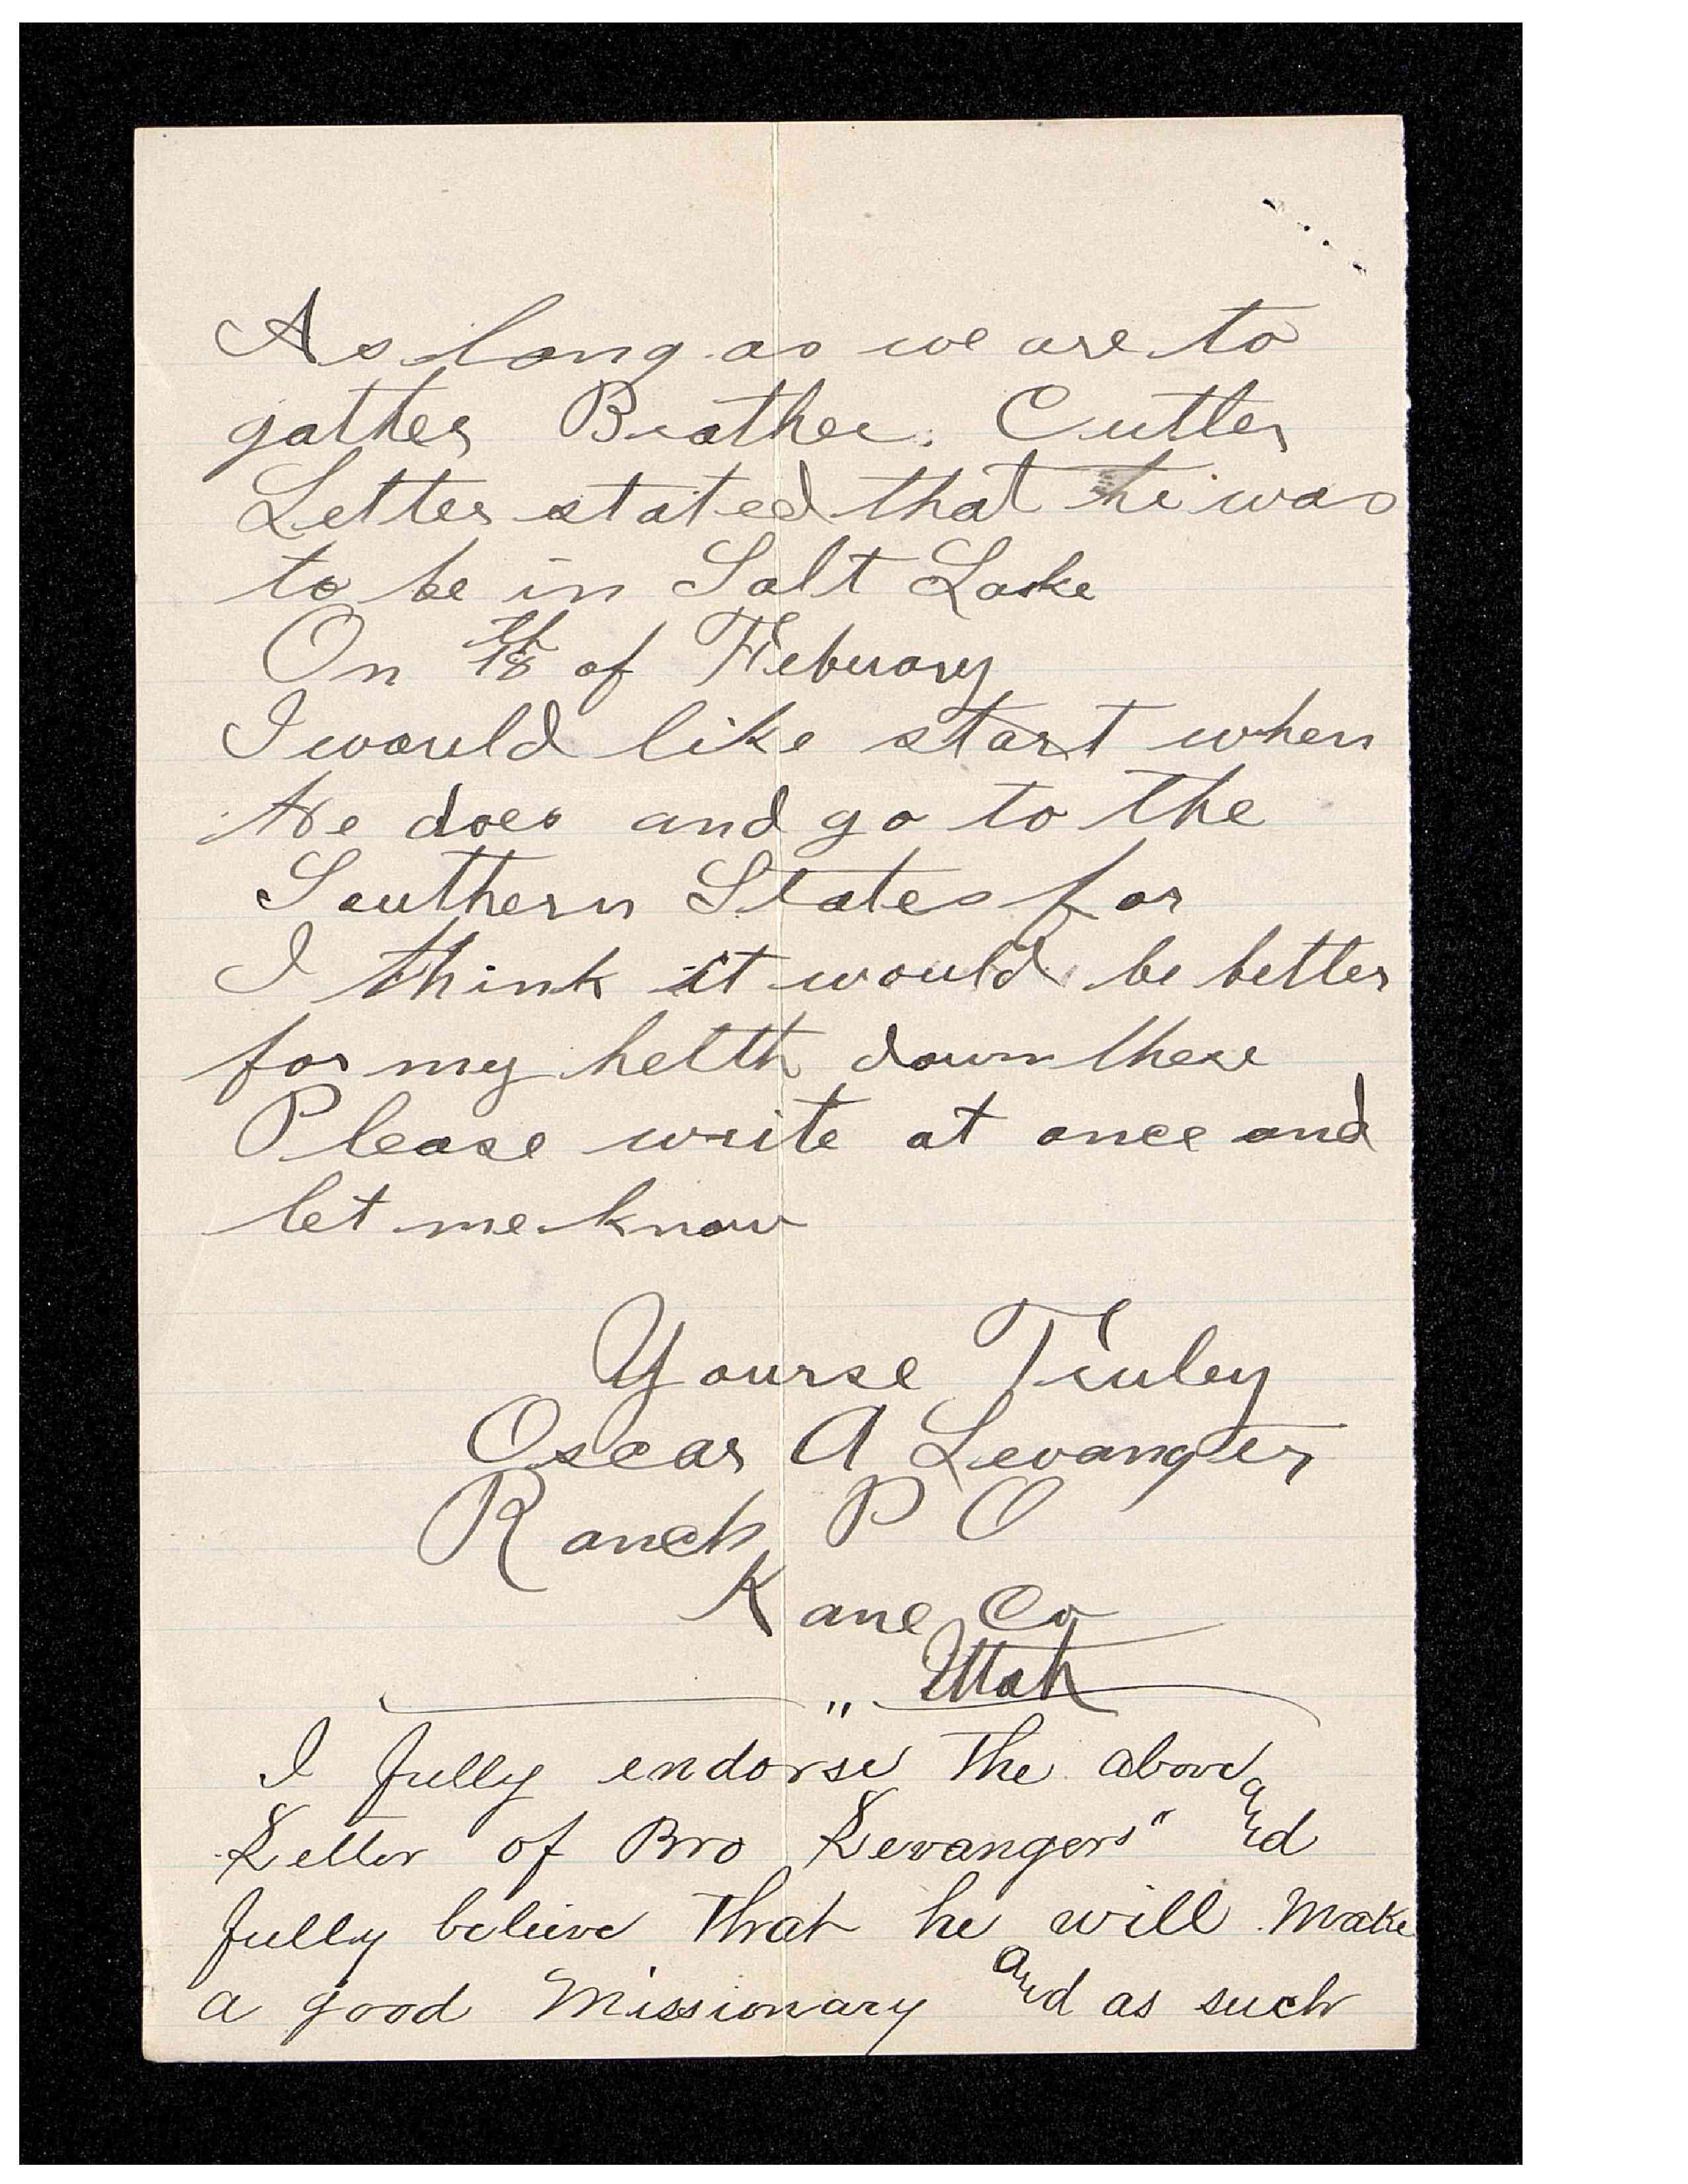 As long as we are to
gather Brother. Cutler
Letter stated that he was
to be in Salt Lake
On 18th of Febuary
I would like start when
He does and go to the
Southern States for
I think it would be better
for my helth down there
Please write at once and
let me know
Yourse Truley
Oscar A Levanger
Ranch P O
Kane Co
" Utah
I fully endorse the above
Letter of Bro Levangers" and
fully believe that he will make
a good Missionary and as such